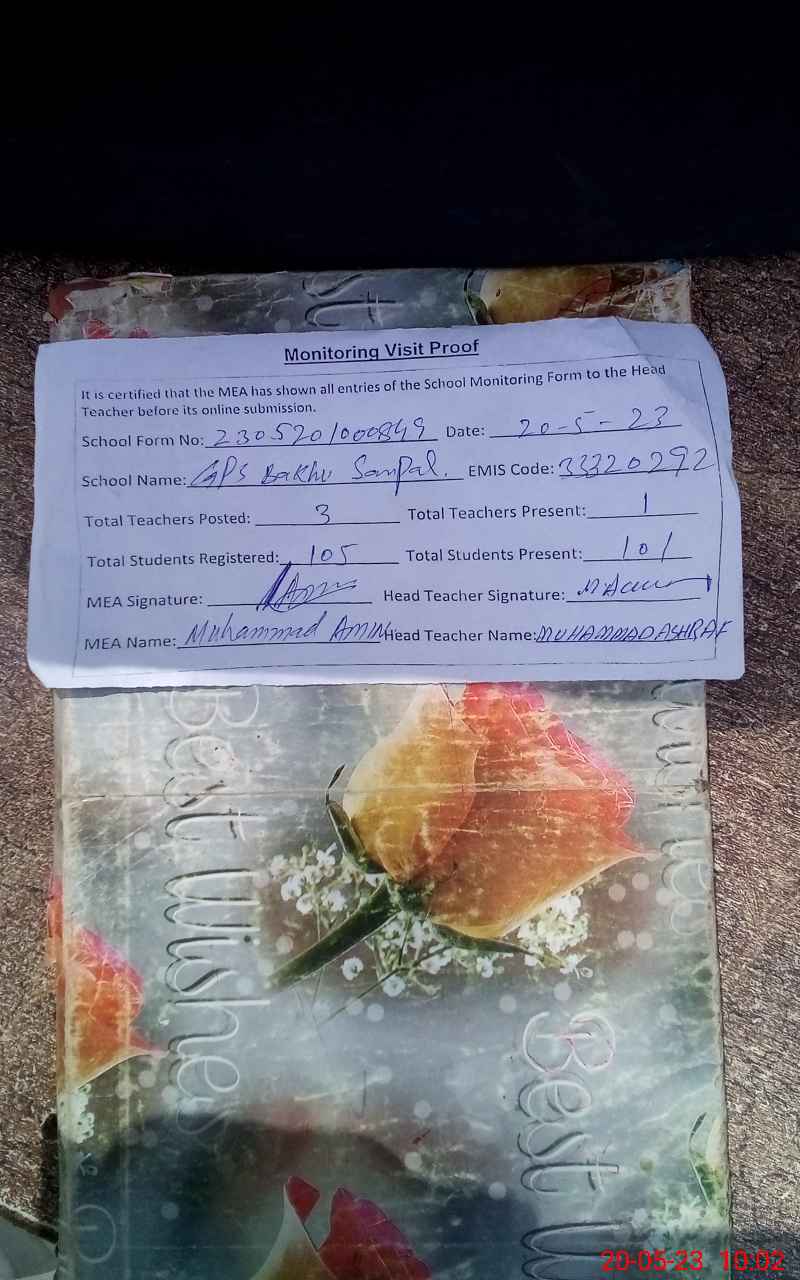 st
Monitoring Visit Proof
It is certified that the MEA has shown all entries of the School Monitoring Form to the Head
Teacher before its online submission.
School Form No: 2305201000849 Date: 20-5-23
School Name: GPS Bakhu Sanpal. EMIS Code: 33320292
Total Teachers Posted: 3 Total Teachers Present: 1
Total Students Registered: 105 Total Students Present: 101
MEA Signature: Head Teacher Signature:
MEA Name: Muhammad Amin Head Teacher Name: MUHAMMAD ASHRAF
Best Wishes
Best W
20-05-23 10:02